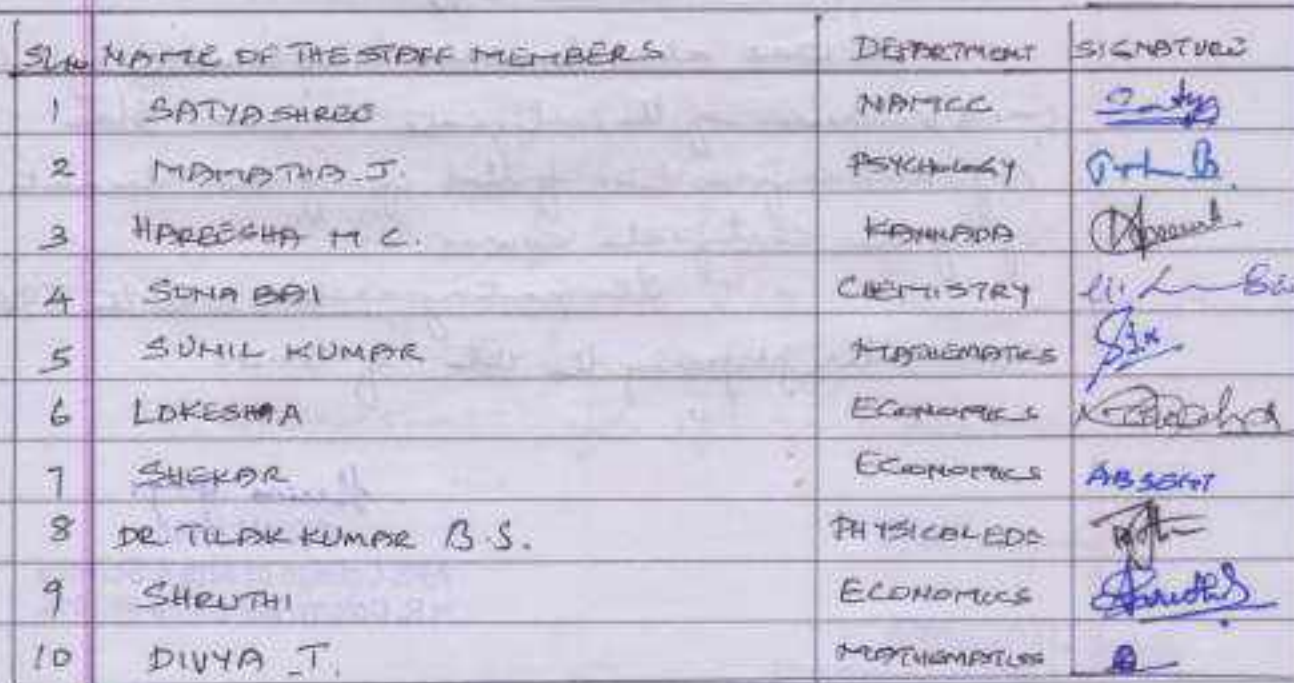 SL.No NAME OF THE STAFF MEMBERS DEPARTMENT SIGNATURE
1 SATYASHREE NAMCC
2 MAMATHA J.  PSYCHOLOGY
3 HAREESHA M C. KANNADA
4 SONA BAI CHEMISTRY
5 SUNIL KUMAR MATHEMATICS
6 LOKESHA ECONOMICS
7 SHEKAR ECONOMICS ABSENT
8 DR. TILAK KUMAR B.S. PHYSICAL EDC
9 SHRUTHI ECONOMICS
10 DIVYA T. MATHEMATICS